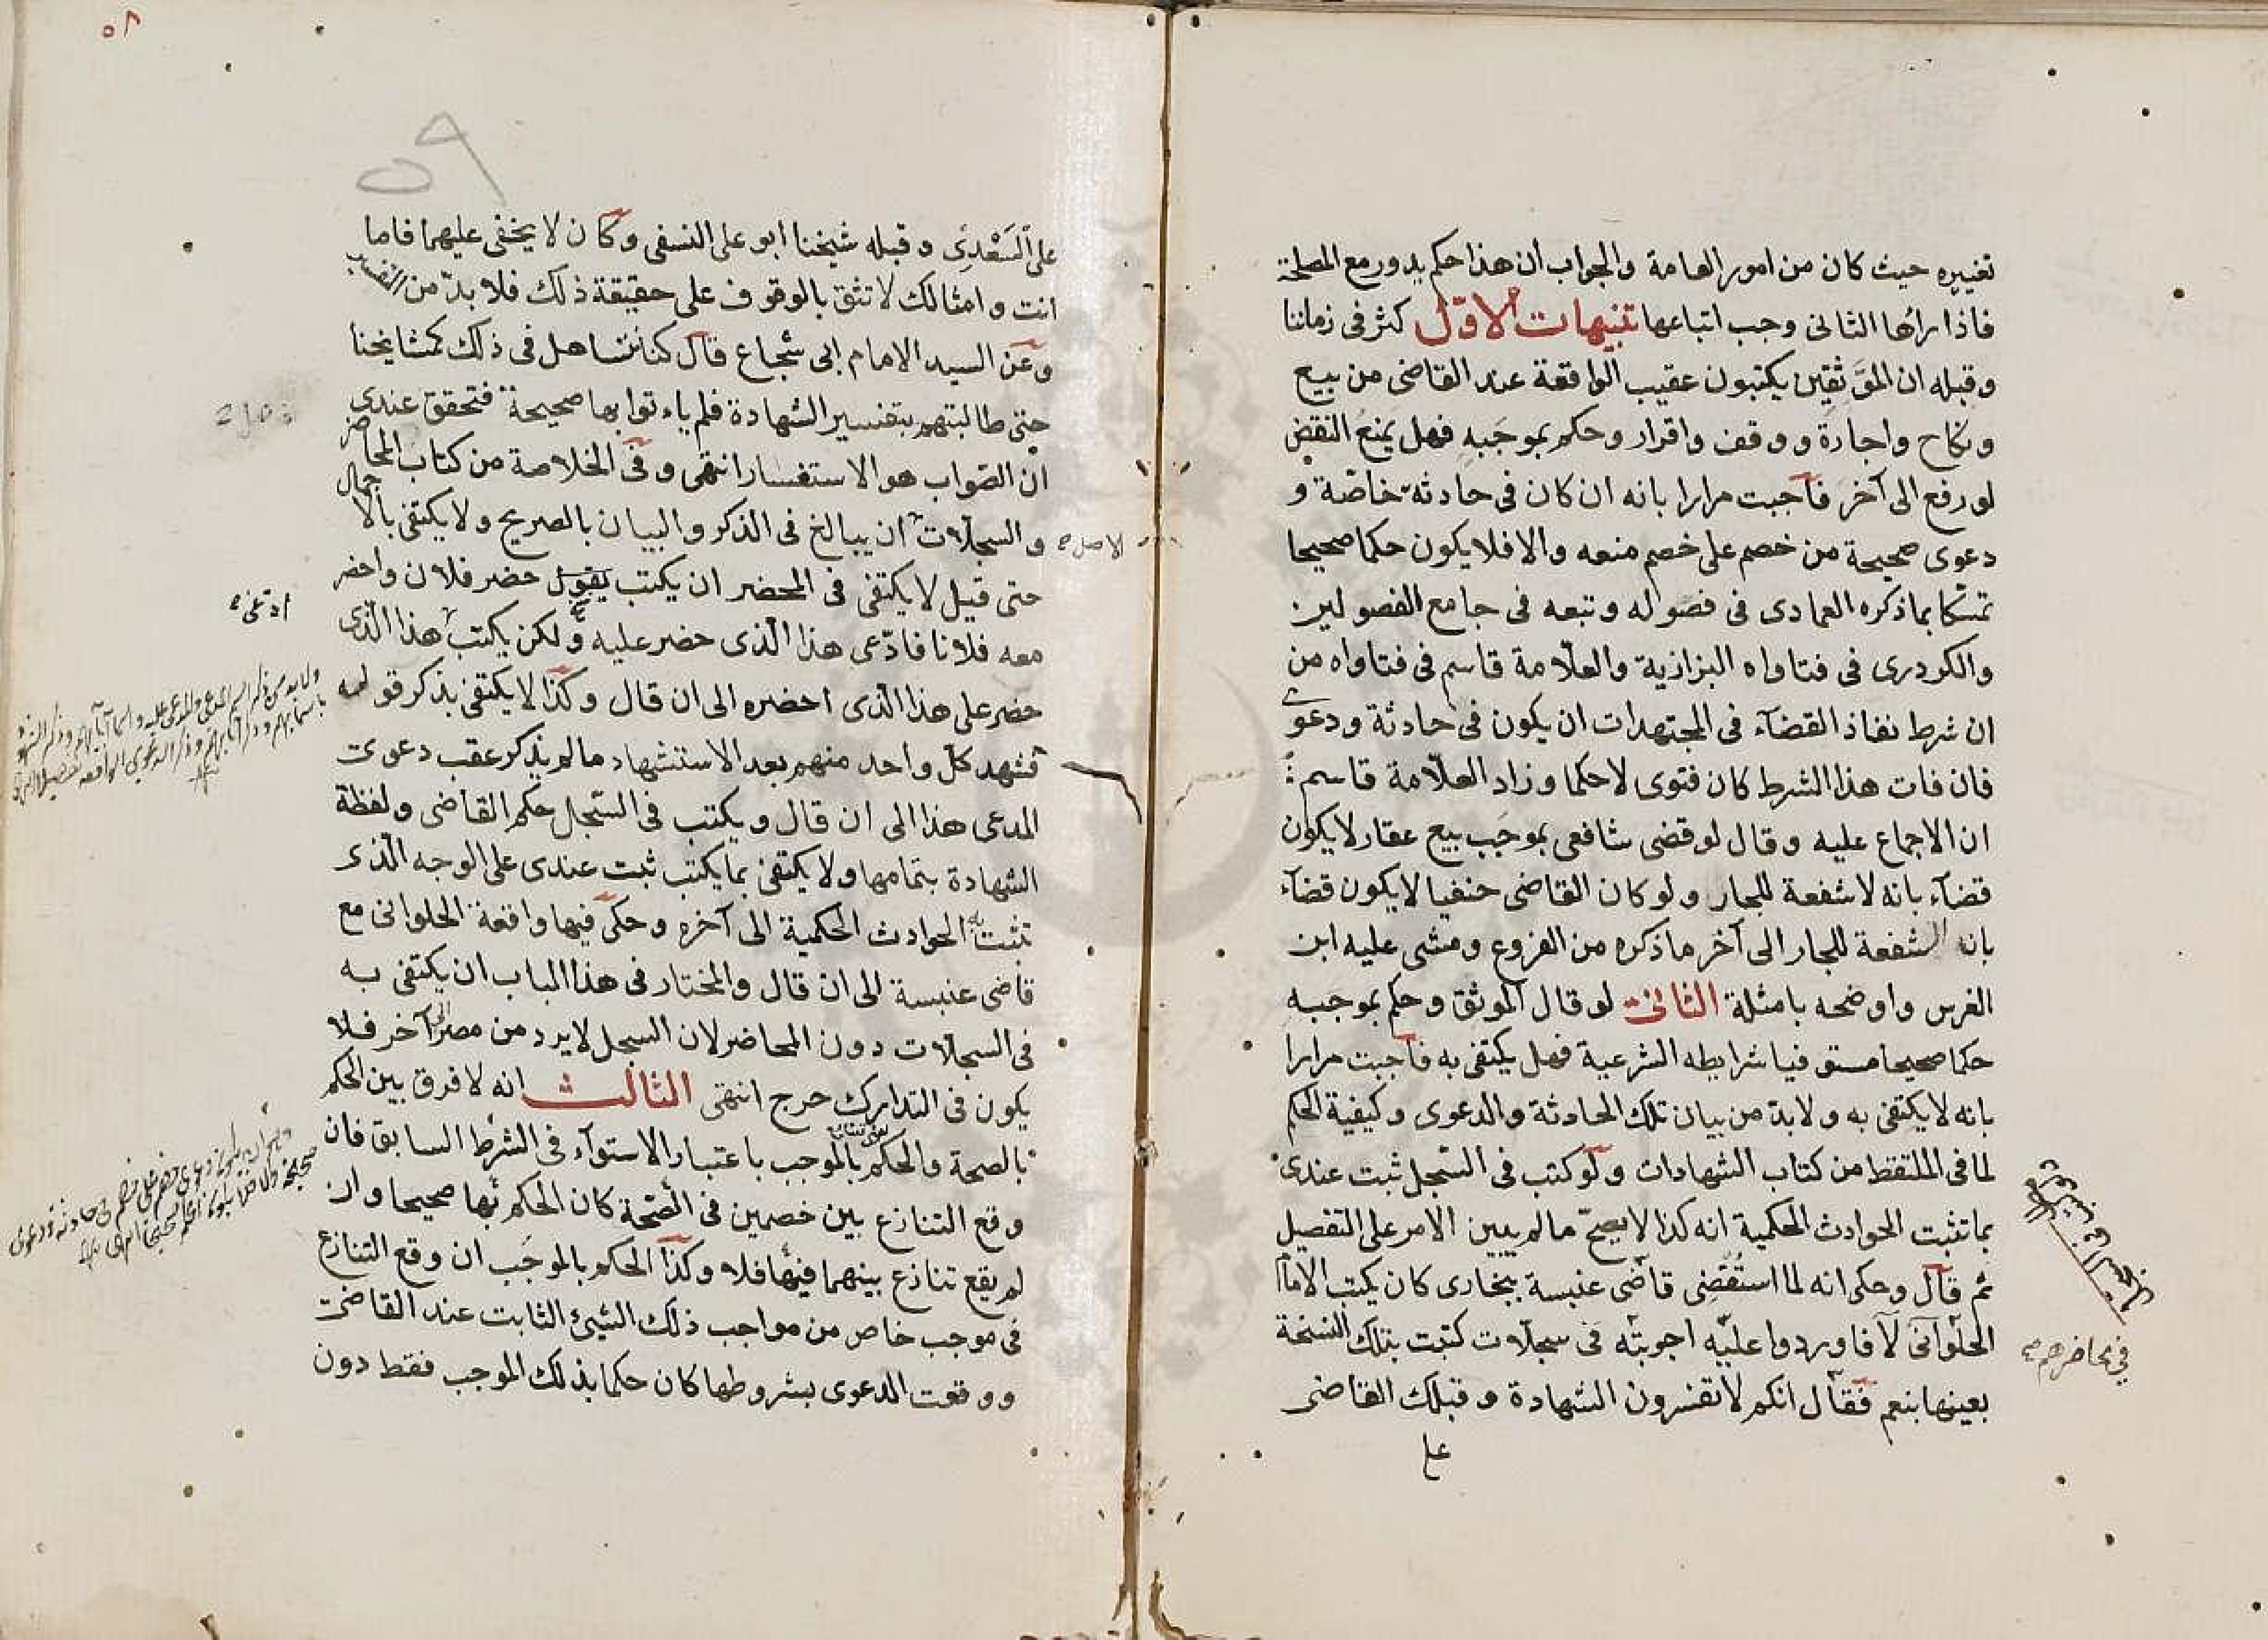 تغييره حيث كان من امور العامة والجواب ان هذا حكم يدور مع المصلحة
فاذا رأها الثانى وجب اتباعها تنبيهات الاوّل كثر فى زماننا
وقبله ان الموَثقِين يكتبون عقيب الواقعة عند القاضى من بيع
ونكاح واجارة ووقف واقرار وحكم بموجَبهِ فهل يمنعُ النقض
لو رفع الى آخر فآجبت مرارا بانه ان كان فى حادثة خاصّة و
دعوى صحيحة من خصم على خصم منعه والا فلا يكون حكما صحيحا
تمسّكا بما ذكره العمادى فى فصوله وتبعه فى جامع الفصولين
والكردرى فى فتاواه البزازية والعلّامة قاسم فى فتاواه من
ان شرط نفاذ القضآء فى المجتهدات ان يكون فى حادثة ودعوى
فان فات هذا الشرط كان فتوى لا حكما وزاد العلّامة قاسم
ان الاجماع عليه وقال لو قضى شافعى بموجَب بيع عقار لا يكون
قضآء بانه لا شفعة للجار ولو كان القاضى حنفيا لا يكون قضآء
بان الشفعة للجار الى آخر ما ذكره من الفروع ومشى عليه ابن
الغرس واوضحه بامثلة الثانى لو قال الموثق وحكم بموجبه
حكما صحيحا مستوفيا شرايطه الشرعية فهل يكتفى به فآجبت مرارا
بانه لا يكتفى به ولا بدّ من بيان تلك الحادثة والدعوى وكيفية الحكم
لما فى الملتقط من كتاب الشهادات ولو كتب فى السّجل ثبت عندى
بما تثبت الحوادث الحكمية انه كذا لا يصحّ ما لم يبين الامر على التفصيل
ثم قآل وحكى انه لما استُقضِى قاضى عنبسة ببخارى كان يكتب الاماا
الحلوانى لا فاوردوا عليه اجوبته فى سجلّات كتبت بتلك النسخة
فى محاضرهم صح
بعينها بنعم فقآل انكم لا تفسرون الشهادة وقبلك القاضى
على
٥٨
٥٩
على السّعْدِى وقبله شيخنا ابو على النسفى وكان لا يخفى عليهما فاما
انت وامثالك لا تثق بالوقوف على حقيقة ذلك فلا بدّ من التفسير
وعن السيد الامام ابى شجاع قآل كنا نتساهل فى ذلك كمشايخنا
حتى طالبتهم بتفسير الشهادة فلم ياءتوا بها صحيحة فتحقق عندى
ان الصّواب هو الاستفسار انتهى وفى الخلاصة من كتاب المحاضر
والسجلّات ان يبالغ فى الذكر والبيان بالصريح ولا يكتفى بالاجمال
الاصل صح
حتى قيل لا يكتفى فى المحضر ان يكتب يقول حضر فلان واحضر
معه فلانا فادّعى هذا الّذى حضر عليه ولكن يكتب هذا الّذى
حضر على هذا الّذى احضره الى ان قال وكذا لا يكتفى بذكر قوله
فشهد كلّ واحد منهم بعد الاستشهاد ما لم يذكر عقب دعوى
المدعى هذا الى ان قال ويكتب فى السّجل حكم القاضى ولفظة
الشهادة بتمامها ولا يكتفى بما يكتب ثبت عندى على الوجه الّذى
تثبت به الحوادث الحكمية الى آخره وحكى فيها واقعة الحلوانى مع
قاضى عنبسة الى ان قال والمختار فى هذا الباب ان يكتفى به
فى السجلّات دون المحاضر لان السجل لا يرد من مصر الى آخر فلا
يكون فى التدارك حرج انتهى الثالث انه لا فرق بين الحكم
بالصحة والحكم بالموجب باعتبار الاستوآء فى الشرط السابق فان
وقع التنازع بين خصمين فى الصّحة كان الحكم بها صحيحا وان
لم يقع تنازع بينهما فيها فلا وكذا الحكم بالموجَب ان وقع التنازع
فى موجب خاص من مواجب ذلك الشيئ الثابت عند القاضى
ووقعت الدعوى بشروطها كان حكما بذلك الموجب فقط دون